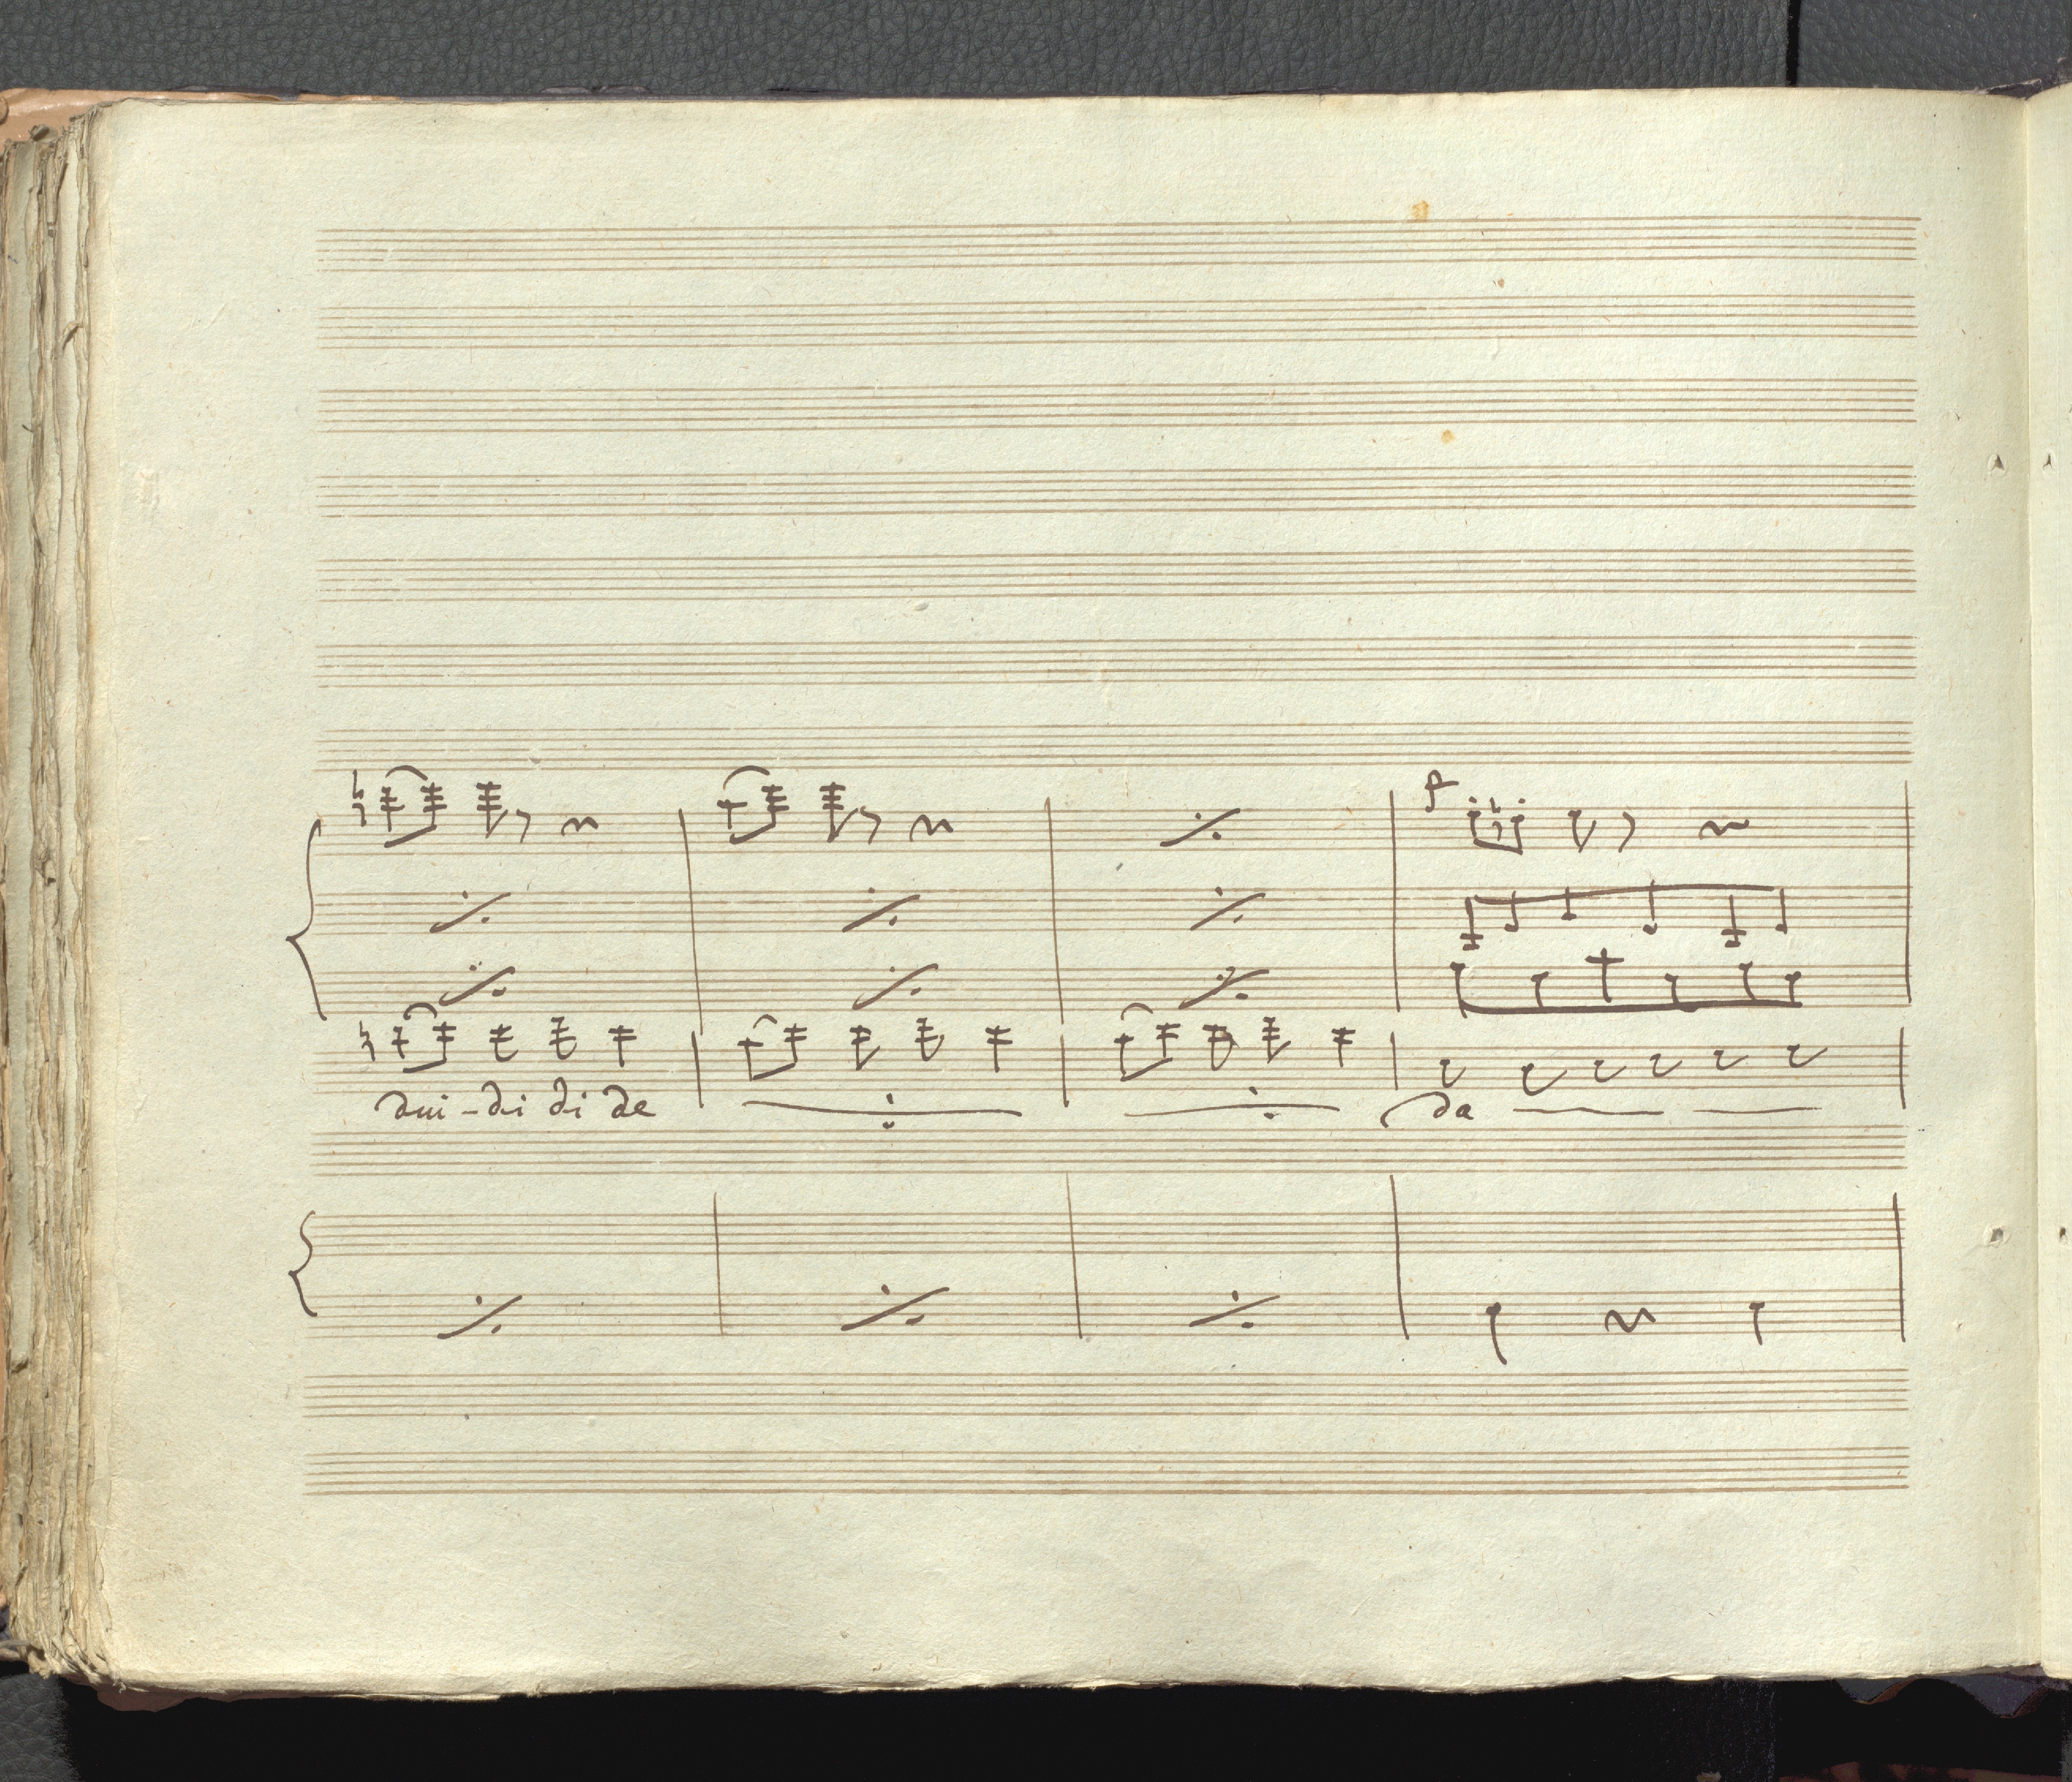 p
dui-di di de
da